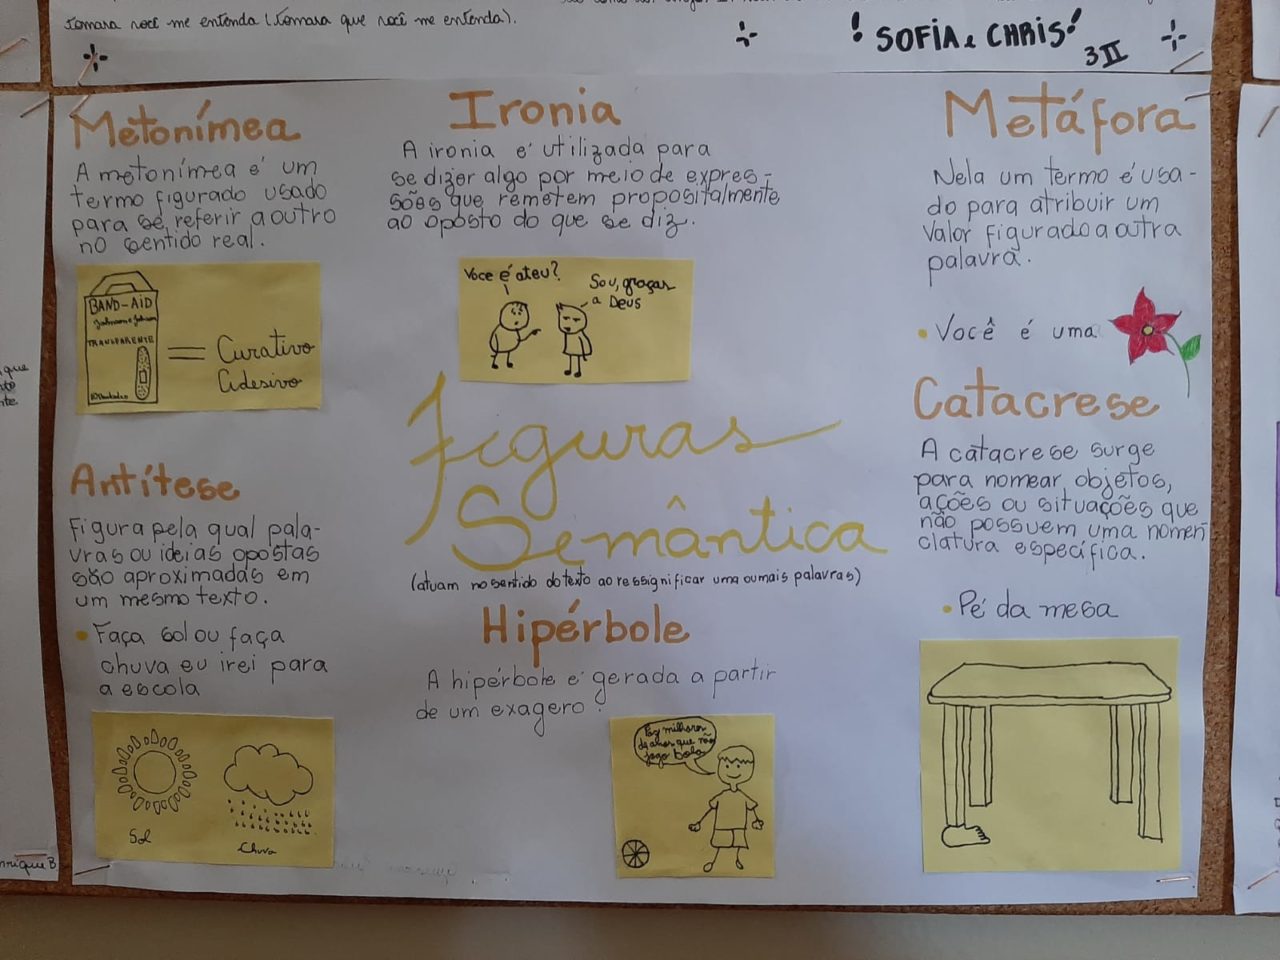 Tomara você me entenda (Tomara que você me entenda).
! SOFIA e CHRIS!
3II
que
Metonímea
A metonímea é um
termo figurado usado
para se referir a outro
no sentido real.
BAND-AID
Johnson & Johnson
TRANSPARENTE
= Curativo
Adesivo
Ironia
A ironia é utilizada para
se dizer algo por meio de expres-
sões que remetem propositalmente
ao oposto do que se diz.
Voce é ateu?
Sou, graças
a Deus
Metáfora
Nela um termo é usa-
do para atribuir um
valor figurado a outra
palavra.
• Você é uma
Figuras
Semântica
(atuam no sentido do texto ao ressignificar uma ou mais palavras)
Antítese
Figura pela qual pala-
vras ou ideias opostas
são aproximadas em
um mesmo texto.
• Faça sol ou faça
chuva eu irei para
a escola
Sol
Chuva
Hipérbole
A hipérbole é gerada a partir
de um exagero.
Faz milhares
de anos que não
jogo bola
Catacrese
A catacrese surge
para nomear objetos,
ações ou situações que
não possuem uma nomen
clatura específica.
• Pé da mesa
nrique B